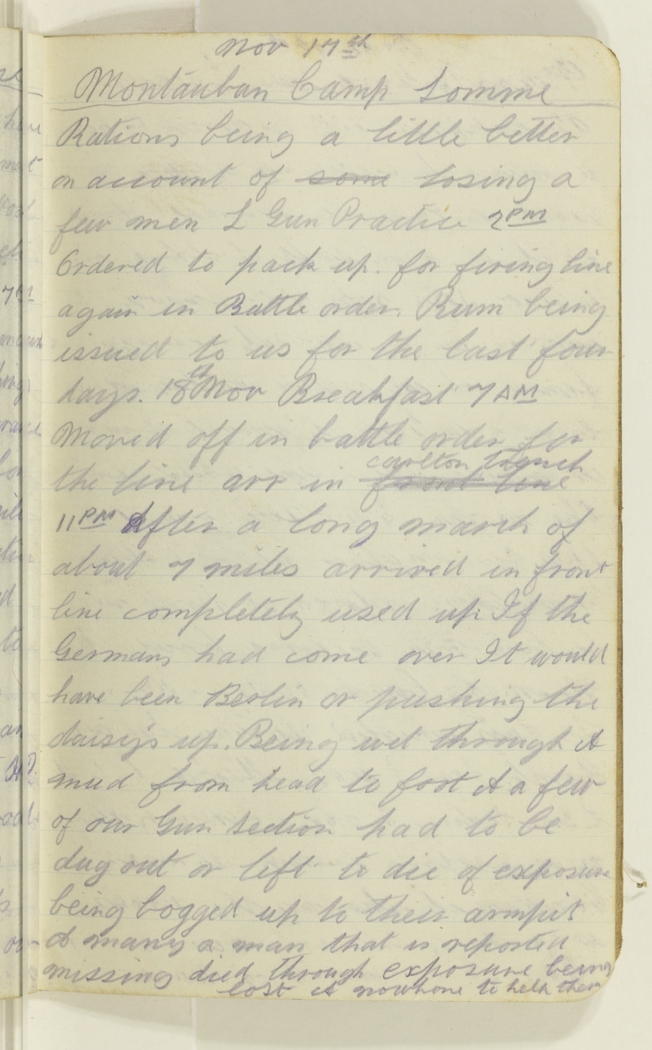 Nov 17th
Montauban Camp Somme
Rations being a little better
on account of some losing a
few men L Gun Practice 2PM
Ordered to pack up. for firing line
again in Battle order. Rum being
issued to us for the last four
days. 18th Nov Breakfast 7 AM
Moved off in battle order for
carlton trench
the line arr in front line
11PM After a long march of
about 7 miles arrived in front
line completely used up. If the
Germans had come over It would
have been Berlin or pushing the
daisy's up. Being wet through &
mud from head to foot & a few
of our Gun Section had to be
dug out or left to die of exposure
being bogged up to their armpit
& many a man that is reported
missing died through exposure being
lost & nowhone to help them